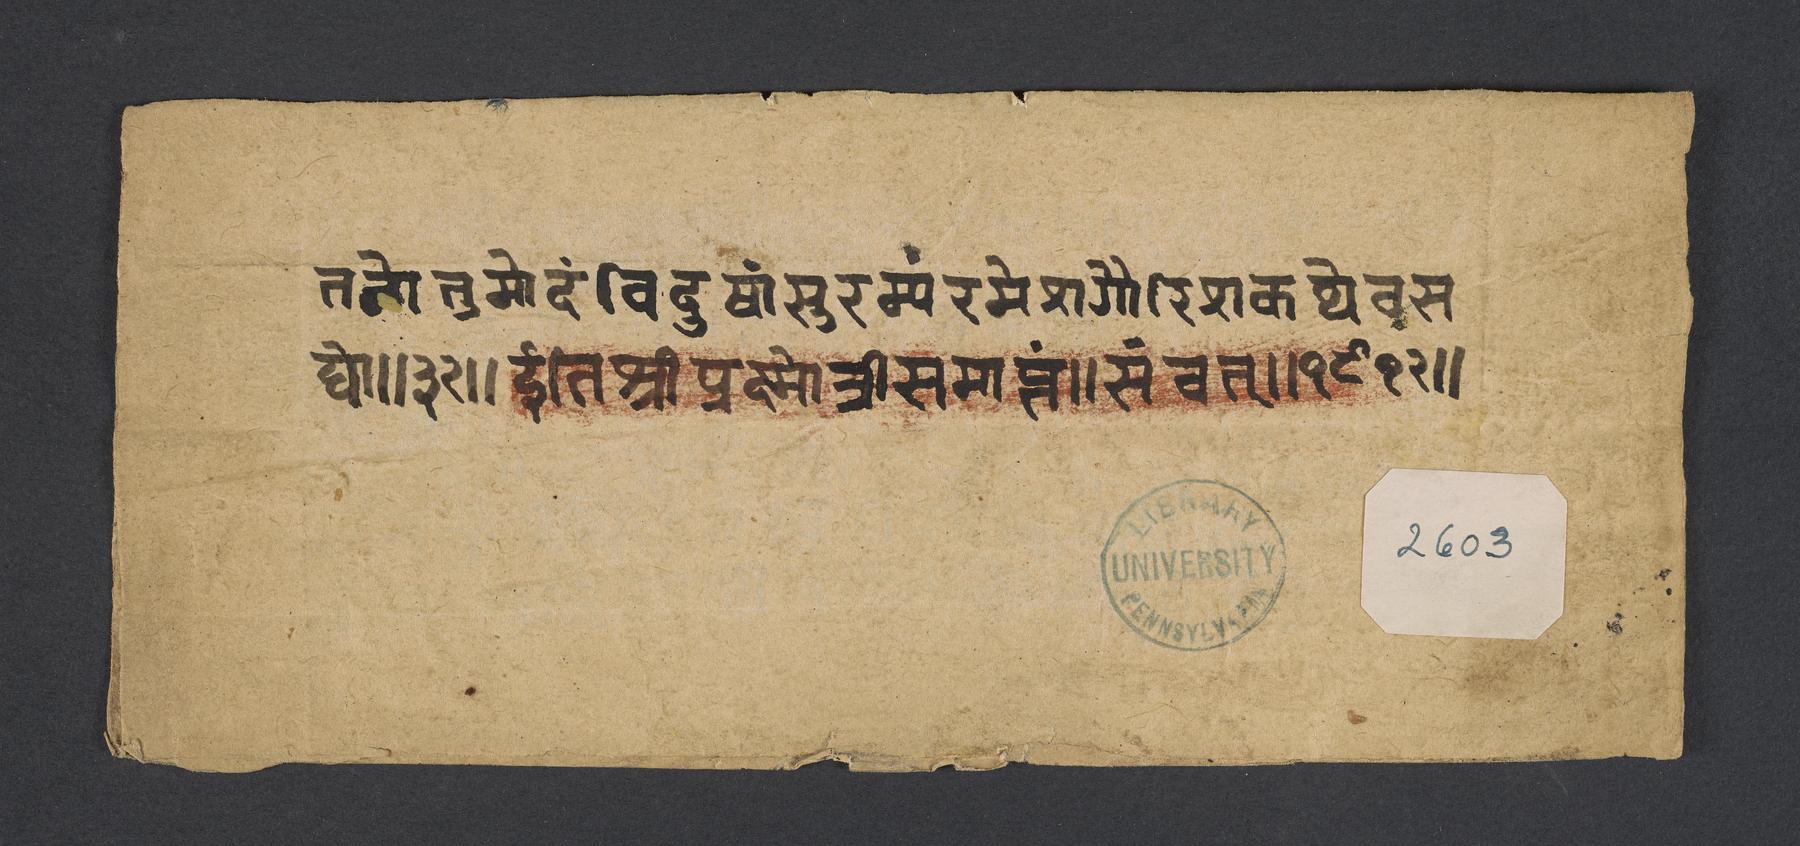 तनोतु मोदं विदुषां सुरम्यं रमेशगौरिशकथेव स
द्यो॥३२॥ ईति श्री प्रश्नोत्री समाप्तं॥ संवत्॥१९१२॥
LIBRARY
UNIVERSITY
PENNSYLVANIA
2603